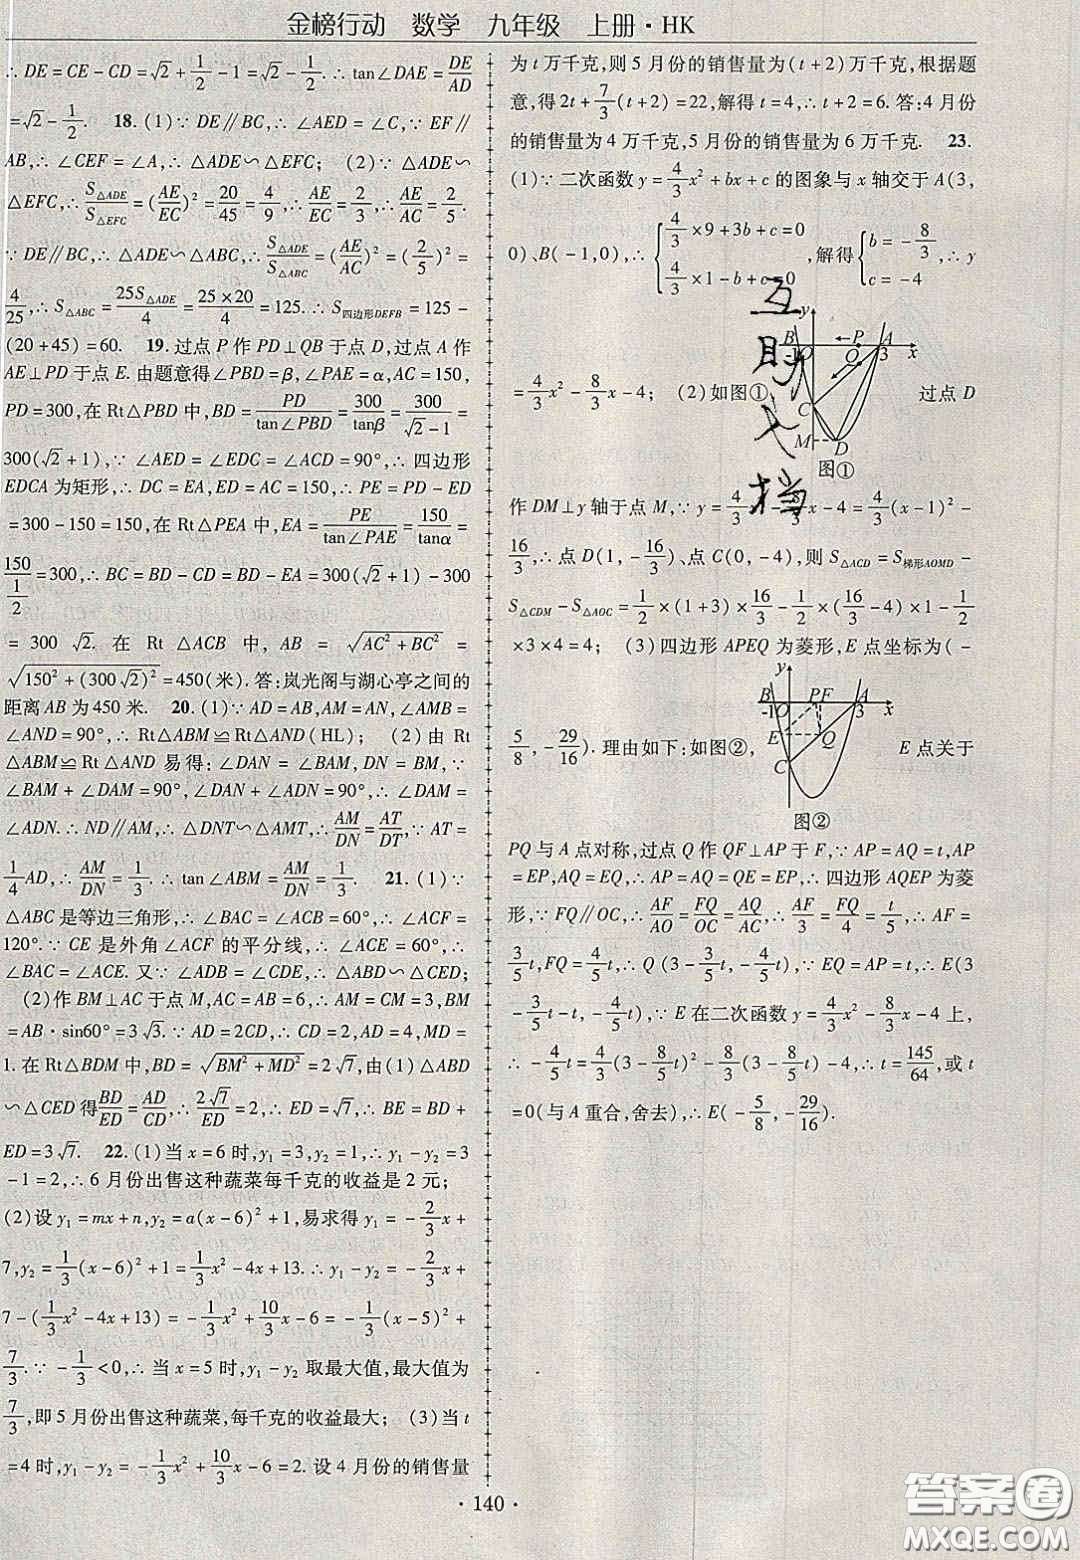 金榜行动 数学 九年级 上册·HK
∴DE=CE-CD=√2+1/2-1=√2-1/2.∴tan∠DAE=DE/AD
=√2-1/2. 18.(1)∵DE∥BC,∴∠AED=∠C,∵EF∥
AB,∴∠CEF=∠A,∴△ADE∽△EFC; (2)∵△ADE∽
△EFC,∴S△ADE/S△EFC=(AE/EC)²=20/45=4/9,∴AE/EC=2/3,∴AE/AC=2/5.
∵DE∥BC,∴△ADE∽△ABC,∴S△ADE/S△ABC=(AE/AC)²=(2/5)²=
4/25,∴S△ABC=25S△ADE/4=25×20/4=125.∴S四边形DEFB=125-
(20+45)=60. 19.过点P作PD⊥QB于点D,过点A作
AE⊥PD于点E.由题意得∠PBD=β,∠PAE=α,AC=150,
PD=300,在Rt△PBD中,BD=PD/tan∠PBD=300/tanβ=300/(√2-1)=
300(√2+1),∵∠AED=∠EDC=∠ACD=90°,∴四边形
EDCA为矩形,∴DC=EA,ED=AC=150,∴PE=PD-ED
=300-150=150,在Rt△PEA中,EA=PE/tan∠PAE=150/tanα=
150/(1/2)=300,∴BC=BD-CD=BD-EA=300(√2+1)-300
=300√2.在Rt△ACB中,AB=√(AC²+BC²)=
√(150²+(300√2)²)=450(米).答:岚光阁与湖心亭之间的
距离AB为450米. 20.(1)∵AD=AB,AM=AN,∠AMB=
∠AND=90°,∴Rt△ABM≌Rt△AND(HL); (2)由Rt
△ABM≌Rt△AND易得:∠DAN=∠BAM,DN=BM,∵
∠BAM+∠DAM=90°,∠DAN+∠ADN=90°,∴∠DAM=
∠ADN.∴ND∥AM,∴△DNT∽△AMT,∴AM/DN=AT/DT,∵AT=
1/4AD,∴AM/DN=1/3.∴tan∠ABM=AM/DN=1/3. 21.(1)∵
△ABC是等边三角形,∴∠BAC=∠ACB=60°,∴∠ACF=
120°.∵CE是外角∠ACF的平分线,∴∠ACE=60°,∴
∠BAC=∠ACE.又∵∠ADB=∠CDE,∴△ABD∽△CED;
(2)作BM⊥AC于点M,AC=AB=6,∴AM=CM=3,BM
=AB·sin60°=3√3.∵AD=2CD,∴CD=2,AD=4,MD=
1.在Rt△BDM中,BD=√(BM²+MD²)=2√7,由(1)△ABD
∽△CED得BD/ED=AD/CD,∴2√7/ED=2,∴ED=√7,∴BE=BD+
ED=3√7. 22.(1)当x=6时,y₁=3,y₂=1,∴y₁-y₂=3
-1=2,∴6月份出售这种蔬菜每千克的收益是2元;
(2)设y₁=mx+n,y₂=a(x-6)²+1,易求得y₁=-2/3x+
7,y₂=1/3(x-6)²+1=1/3x²-4x+13.∴y₁-y₂=-2/3x+
7-(1/3x²-4x+13)=-1/3x²+10/3x-6=-1/3(x-5)²+
7/3.∵-1/3<0,∴当x=5时,y₁-y₂取最大值,最大值为
7/3,即5月份出售这种蔬菜,每千克的收益最大; (3)当t
=4时,y₁-y₂=-1/3x²+10/3x-6=2.设4月份的销售量
为t万千克,则5月份的销售量为(t+2)万千克,根据题
意,得2t+7/3(t+2)=22,解得t=4,∴t+2=6.答:4月份
的销售量为4万千克,5月份的销售量为6万千克. 23.
(1)∵二次函数y=4/3x²+bx+c的图象与x轴交于A(3,
0)、B(-1,0),∴{4/3×9+3b+c=0 4/3×1-b+c=0,解得{b=-8/3 c=-4,∴y
=4/3x²-8/3x-4; (2)如图①, 过点D
y B -1 O P A Q 3 x C M D
图①
作DM⊥y轴于点M,∵y=4/3x²-8/3x-4=4/3(x-1)²-
16/3,∴点D(1,-16/3)、点C(0,-4),则S△ACD=S梯形AOMD-
S△CDM-S△AOC=1/2×(1+3)×16/3-1/2×(16/3-4)×1-1/2
×3×4=4; (3)四边形APEQ为菱形,E点坐标为(-
5/8,-29/16).理由如下:如图②, E点关于
y B -1 O P F A 3 x E Q C
图②
PQ与A点对称,过点Q作QF⊥AP于F,∵AP=AQ=t,AP
=EP,AQ=EQ,∴AP=AQ=QE=EP,∴四边形AQEP为菱
形,∵FQ∥OC,∴AF/AO=FQ/OC=AQ/AC,∴AF/3=FQ/4=t/5,∴AF=
3/5t,FQ=4/5t,∴Q(3-3/5t,-4/5t),∵EQ=AP=t,∴E(3
-3/5t-t,-4/5t),∵E在二次函数y=4/3x²-8/3x-4上,
∴-4/5t=4/3(3-8/5t)²-8/3(3-8/5t)-4,∴t=145/64,或t
=0(与A重合,舍去),∴E(-5/8,-29/16).
互时入挡
·140·
答案圈
MXQE.COM